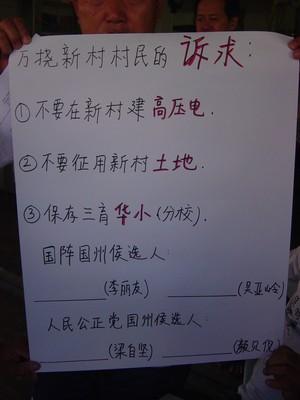 万挠新村村民的 诉求:
①不要在新村建 高压电.
②不要征用新村 土地.
③保存三育 华小(分校).
国阵国州侯选人:
(李丽友) (吴亚
人民公正党国州侯选人:
(梁自坚) (颜贝倪)